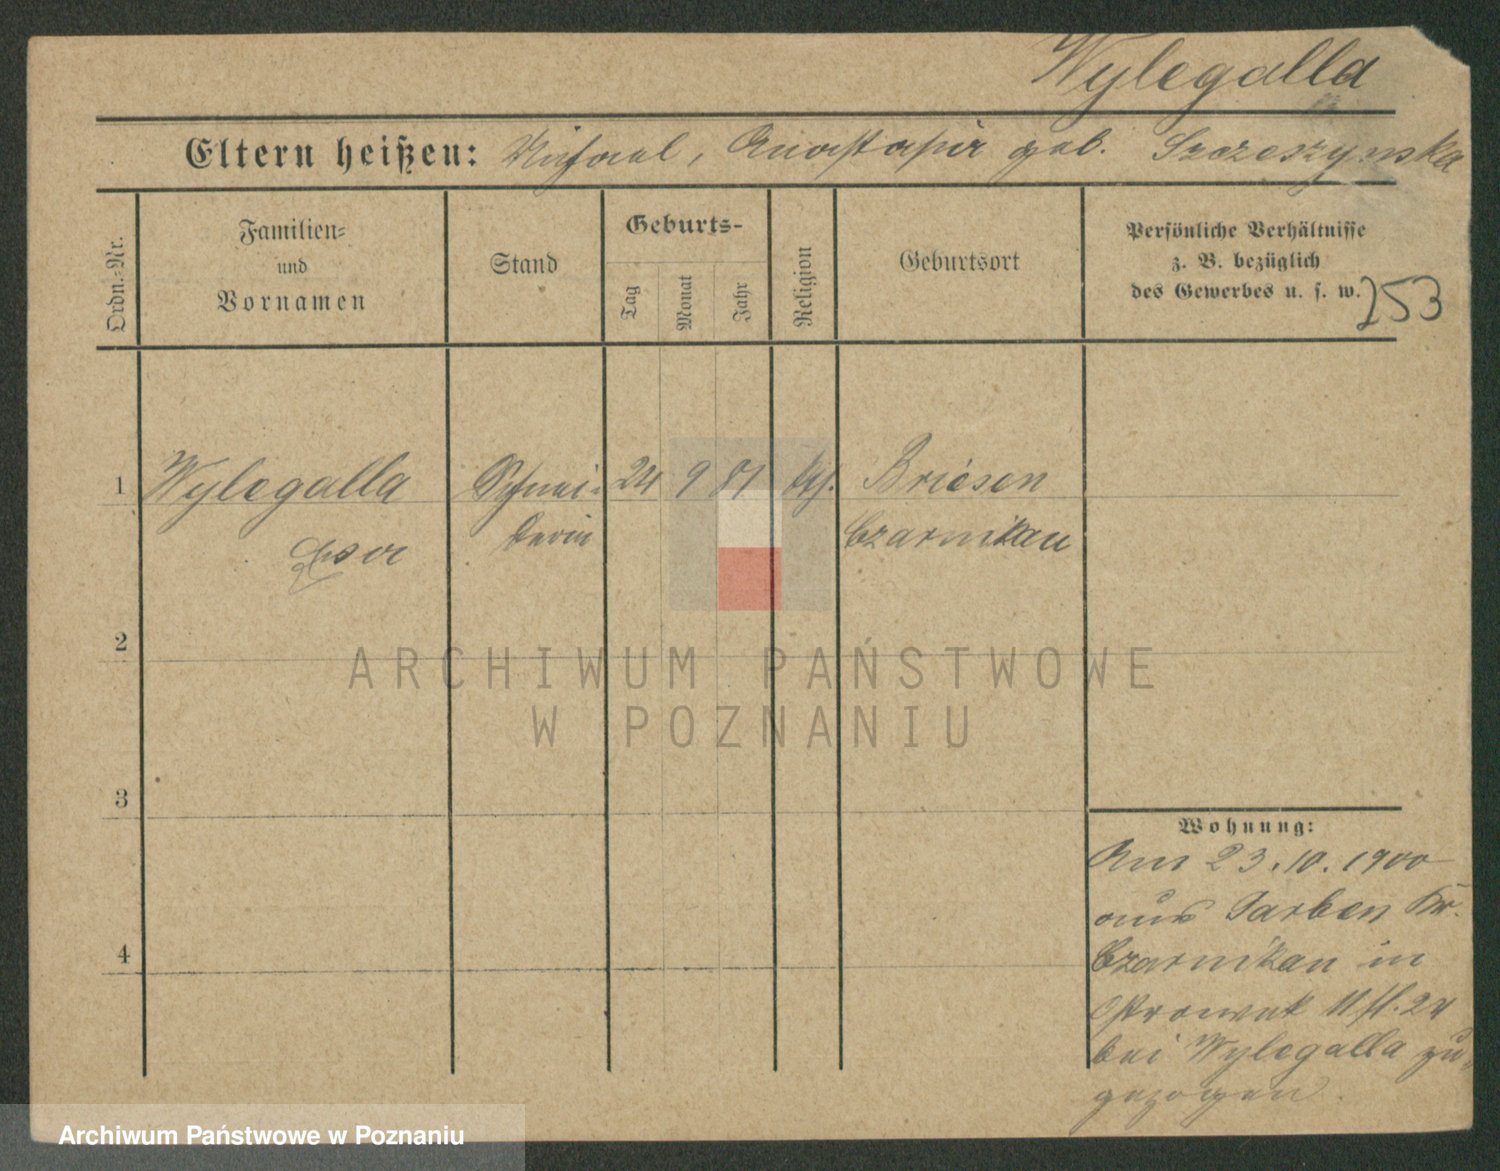 Wylegalla
Eltern heißen: Michael, Anastasia geb. Szczeszynska
Ordn.-Nr.
Familien-
und
Vornamen
Stand
Geburts-
Tag
Monat
Jahr
Religion
Geburtsort
Persönliche Verhältnisse
z. B. bezüglich
des Gewerbes u. s. w.
253
1 Wylegalla Schnei- 24 9 81 kath. Briesen
derin Czarnikau
2
3
4
Wohnung:
Am 23.10.1900
aus Sarben Kr.
Czarnikau in
bei Wylegalla zu-
gezogen.
ARCHIWUM PAŃSTWOWE
W POZNANIU
Archiwum Państwowe w Poznaniu